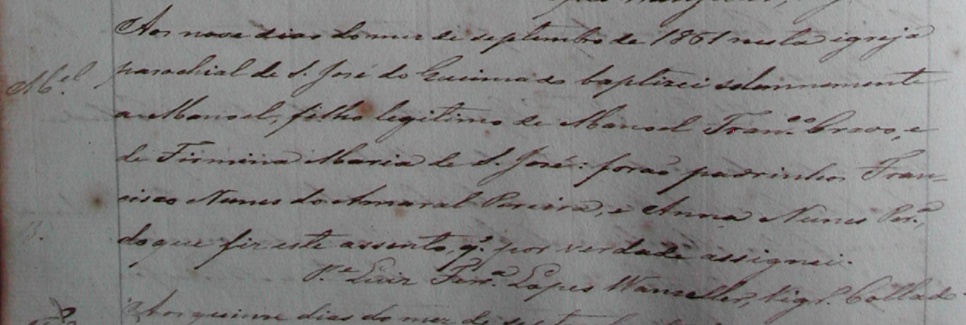 Aos nove dias do mez de septembro de 1861 nesta igreja
Mel. parochial de S. José do Queimado baptizei solemnemente
a Manoel, filho legitimo de Manoel Franco. Cravo, e
de Firmina Maria de S. José: forão padrinhos Fran-
cisco Nunes do Amaral Pereira, e Anna Nunes Pera.,
do que fiz este assento, q. por verdade assignei.
Pe. Luiz Fera. Lopes Wanzeller, Vigro. Collado.
Aos quinze dias do mez de